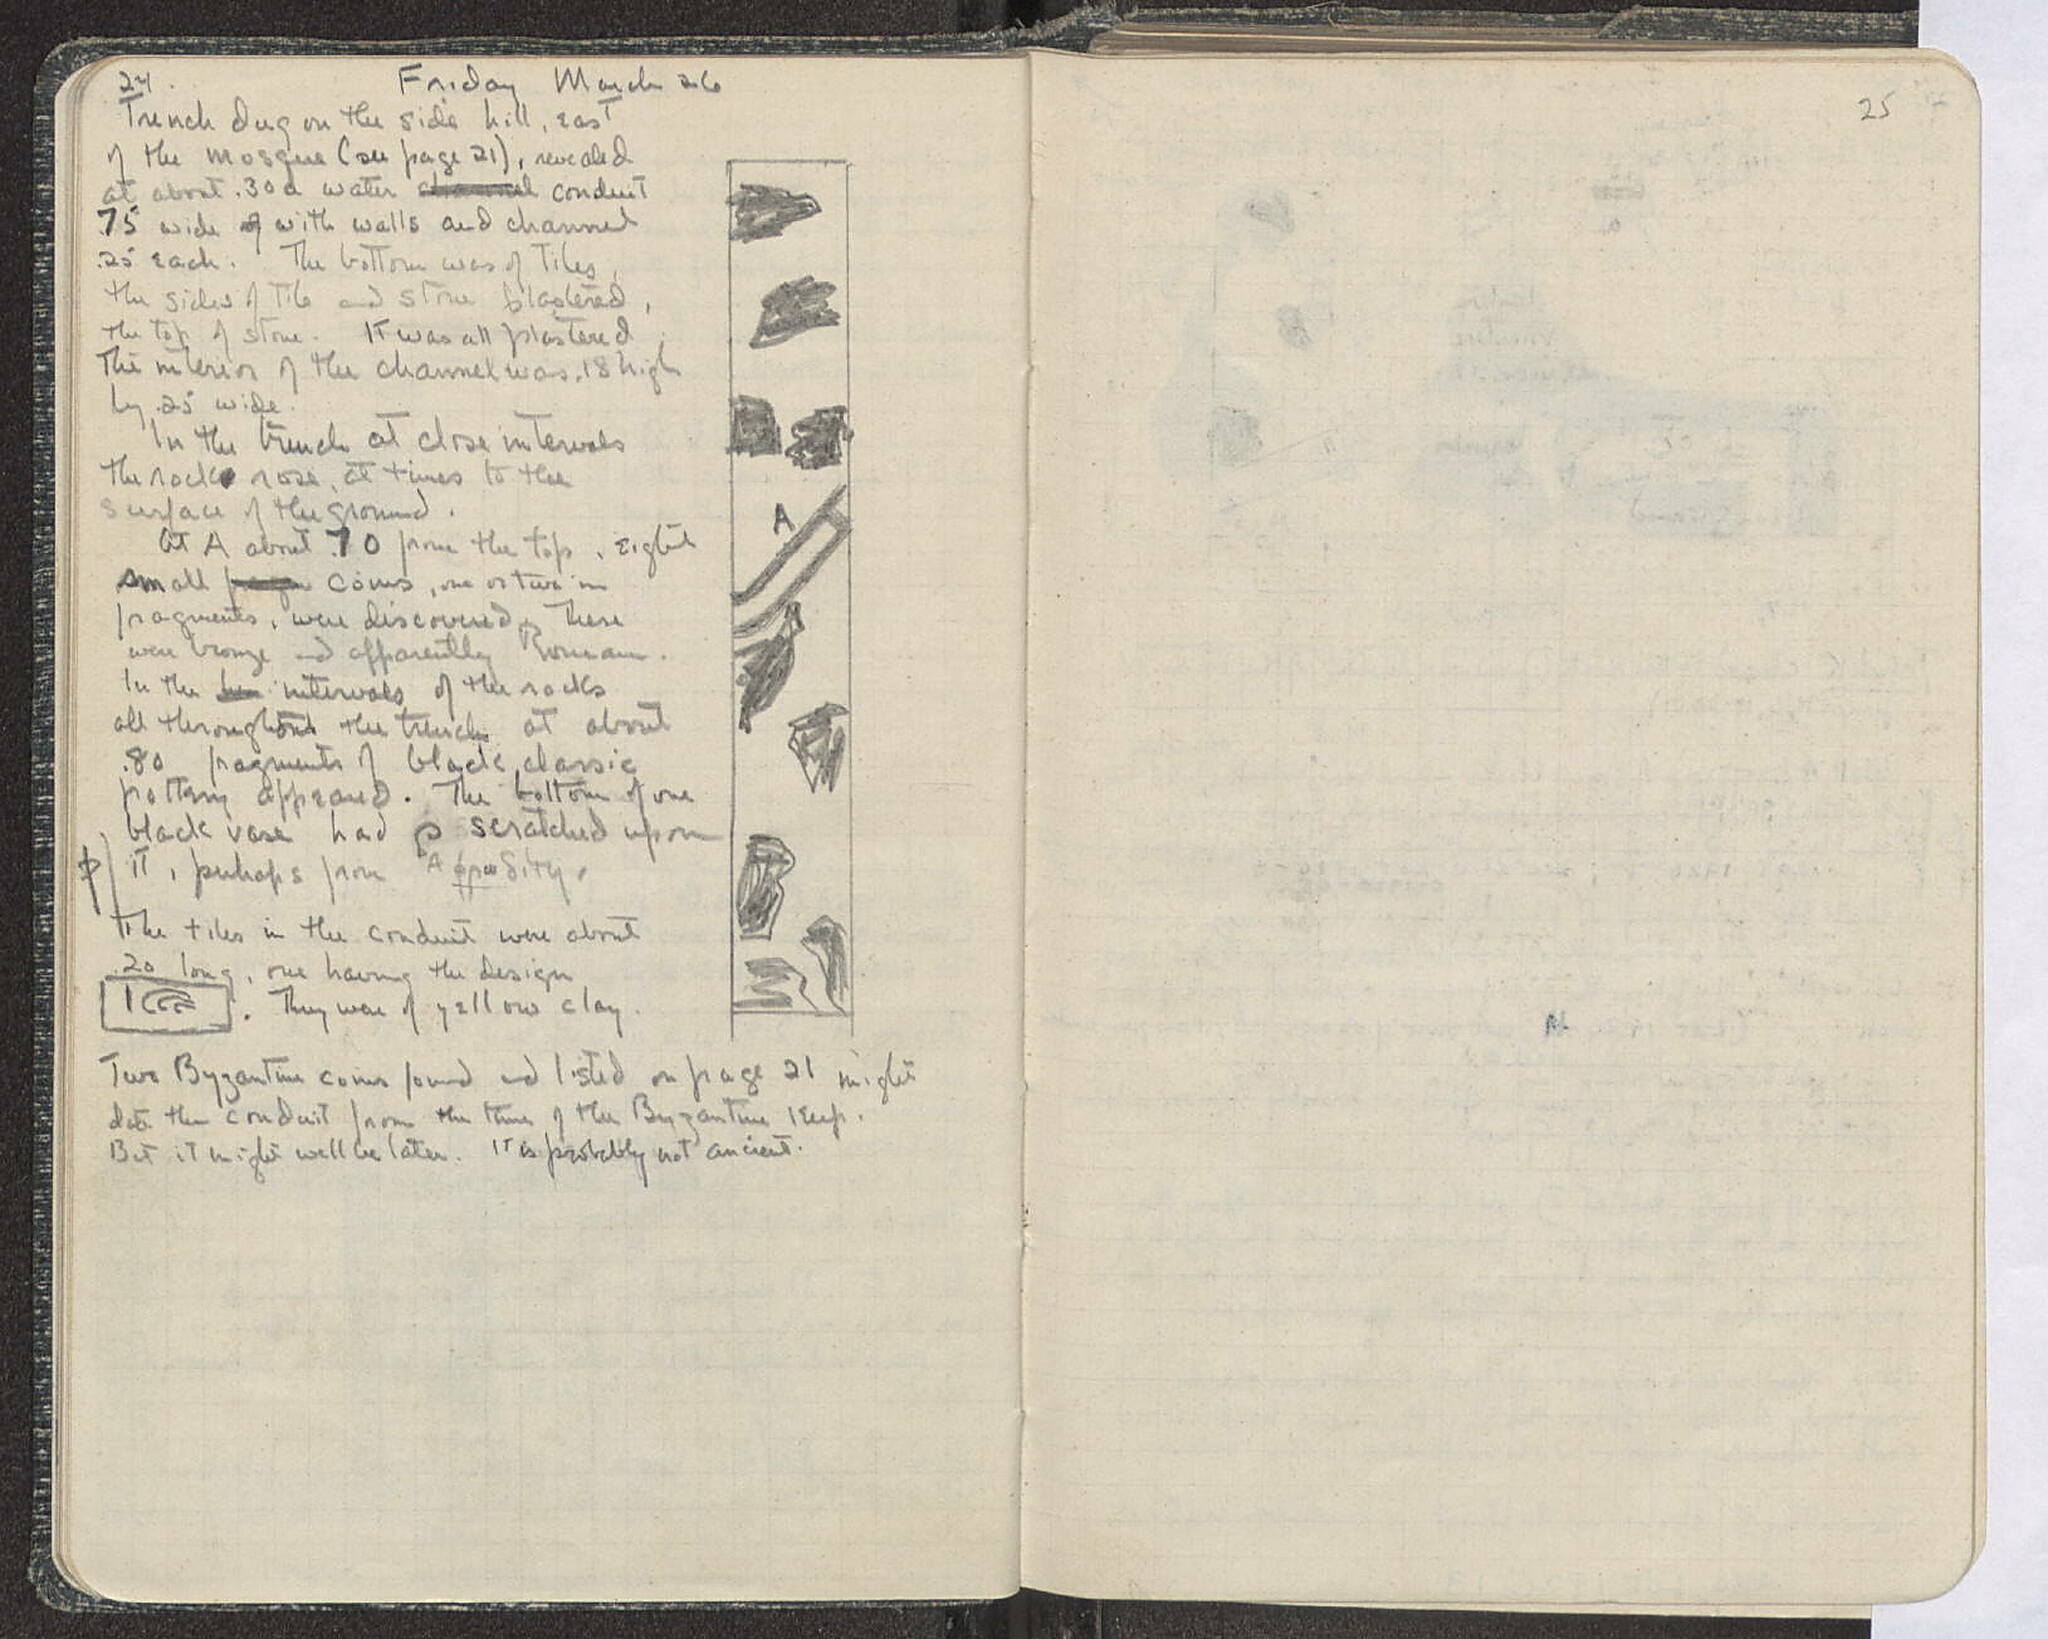 24. Friday March 26
Trench dug on the side hill, east
of the mosque (see page 21), revealed
at about .30 a water channel conduit
.75 wide of with walls and channel
.25 each. The bottom was of tiles,
the sides of tile and stone plastered,
the top of stone. It was all plastered.
The interior of the channel was .18 high
by .25 wide.
In the trench at close intervals
the rock rose, at times to the
surface of the ground.
At A about .70 from the top, eight
small coins, one or two in
fragments, were discovered. These
were bronze and apparently Roman.
In the intervals of the rocks
all throughout the trench at about
.80 fragments of black classic
pottery appeared. The bottom of one
black vase had scratched upon
it, perhaps from
The tiles in the conduit were about
.20 long, one having the design
. They were of yellow clay.
Two Byzantine coins found and listed on page 21 might
date the conduit from the time of the Byzantine keep.
But it might well be later. It is probably not ancient.
A
25